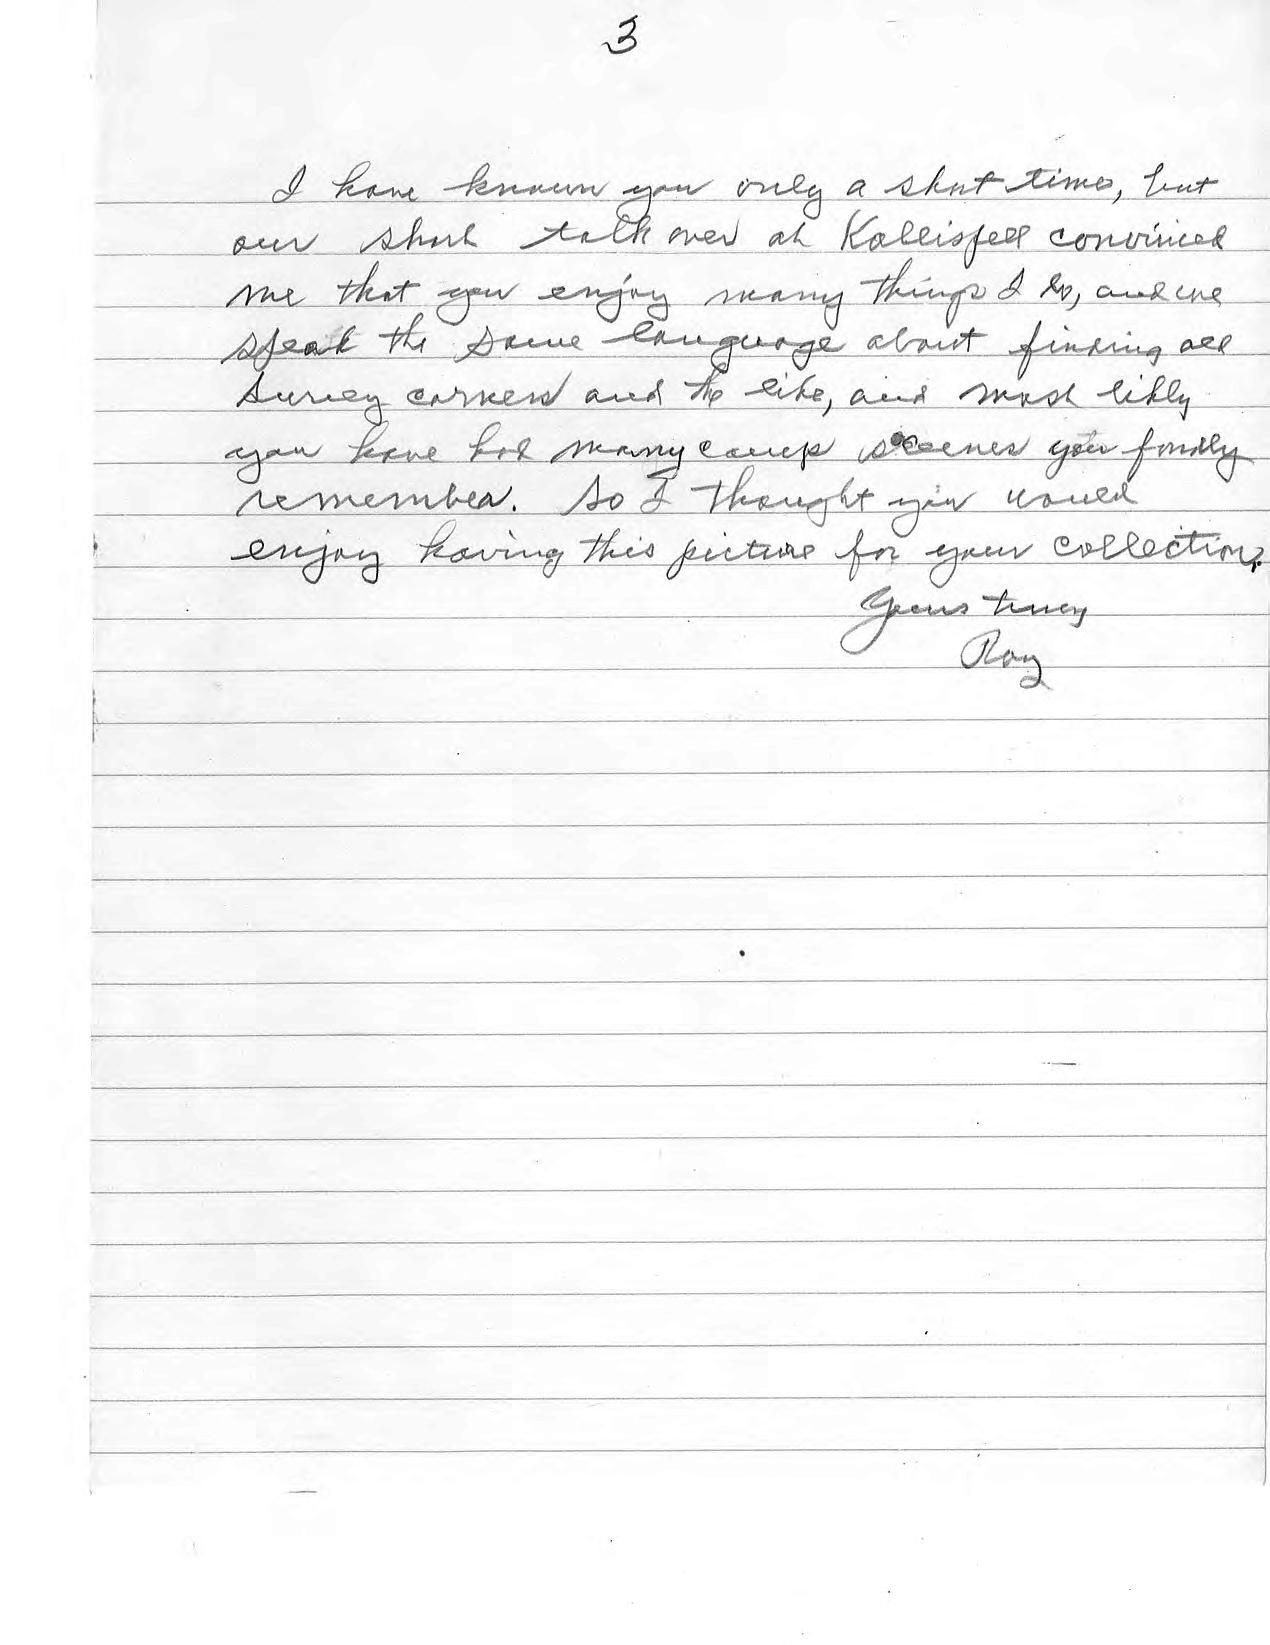 3
I have known you only a short time, but
our short talk over at Kallispell convinced
me that you enjoy many things I do, and we
speak the same language about finding old
survey corners and the like, and most likly
you have had many camp scenes you fondly
remember. So I thought you would
enjoy having this picture for your collection.
Yours truly
Roy